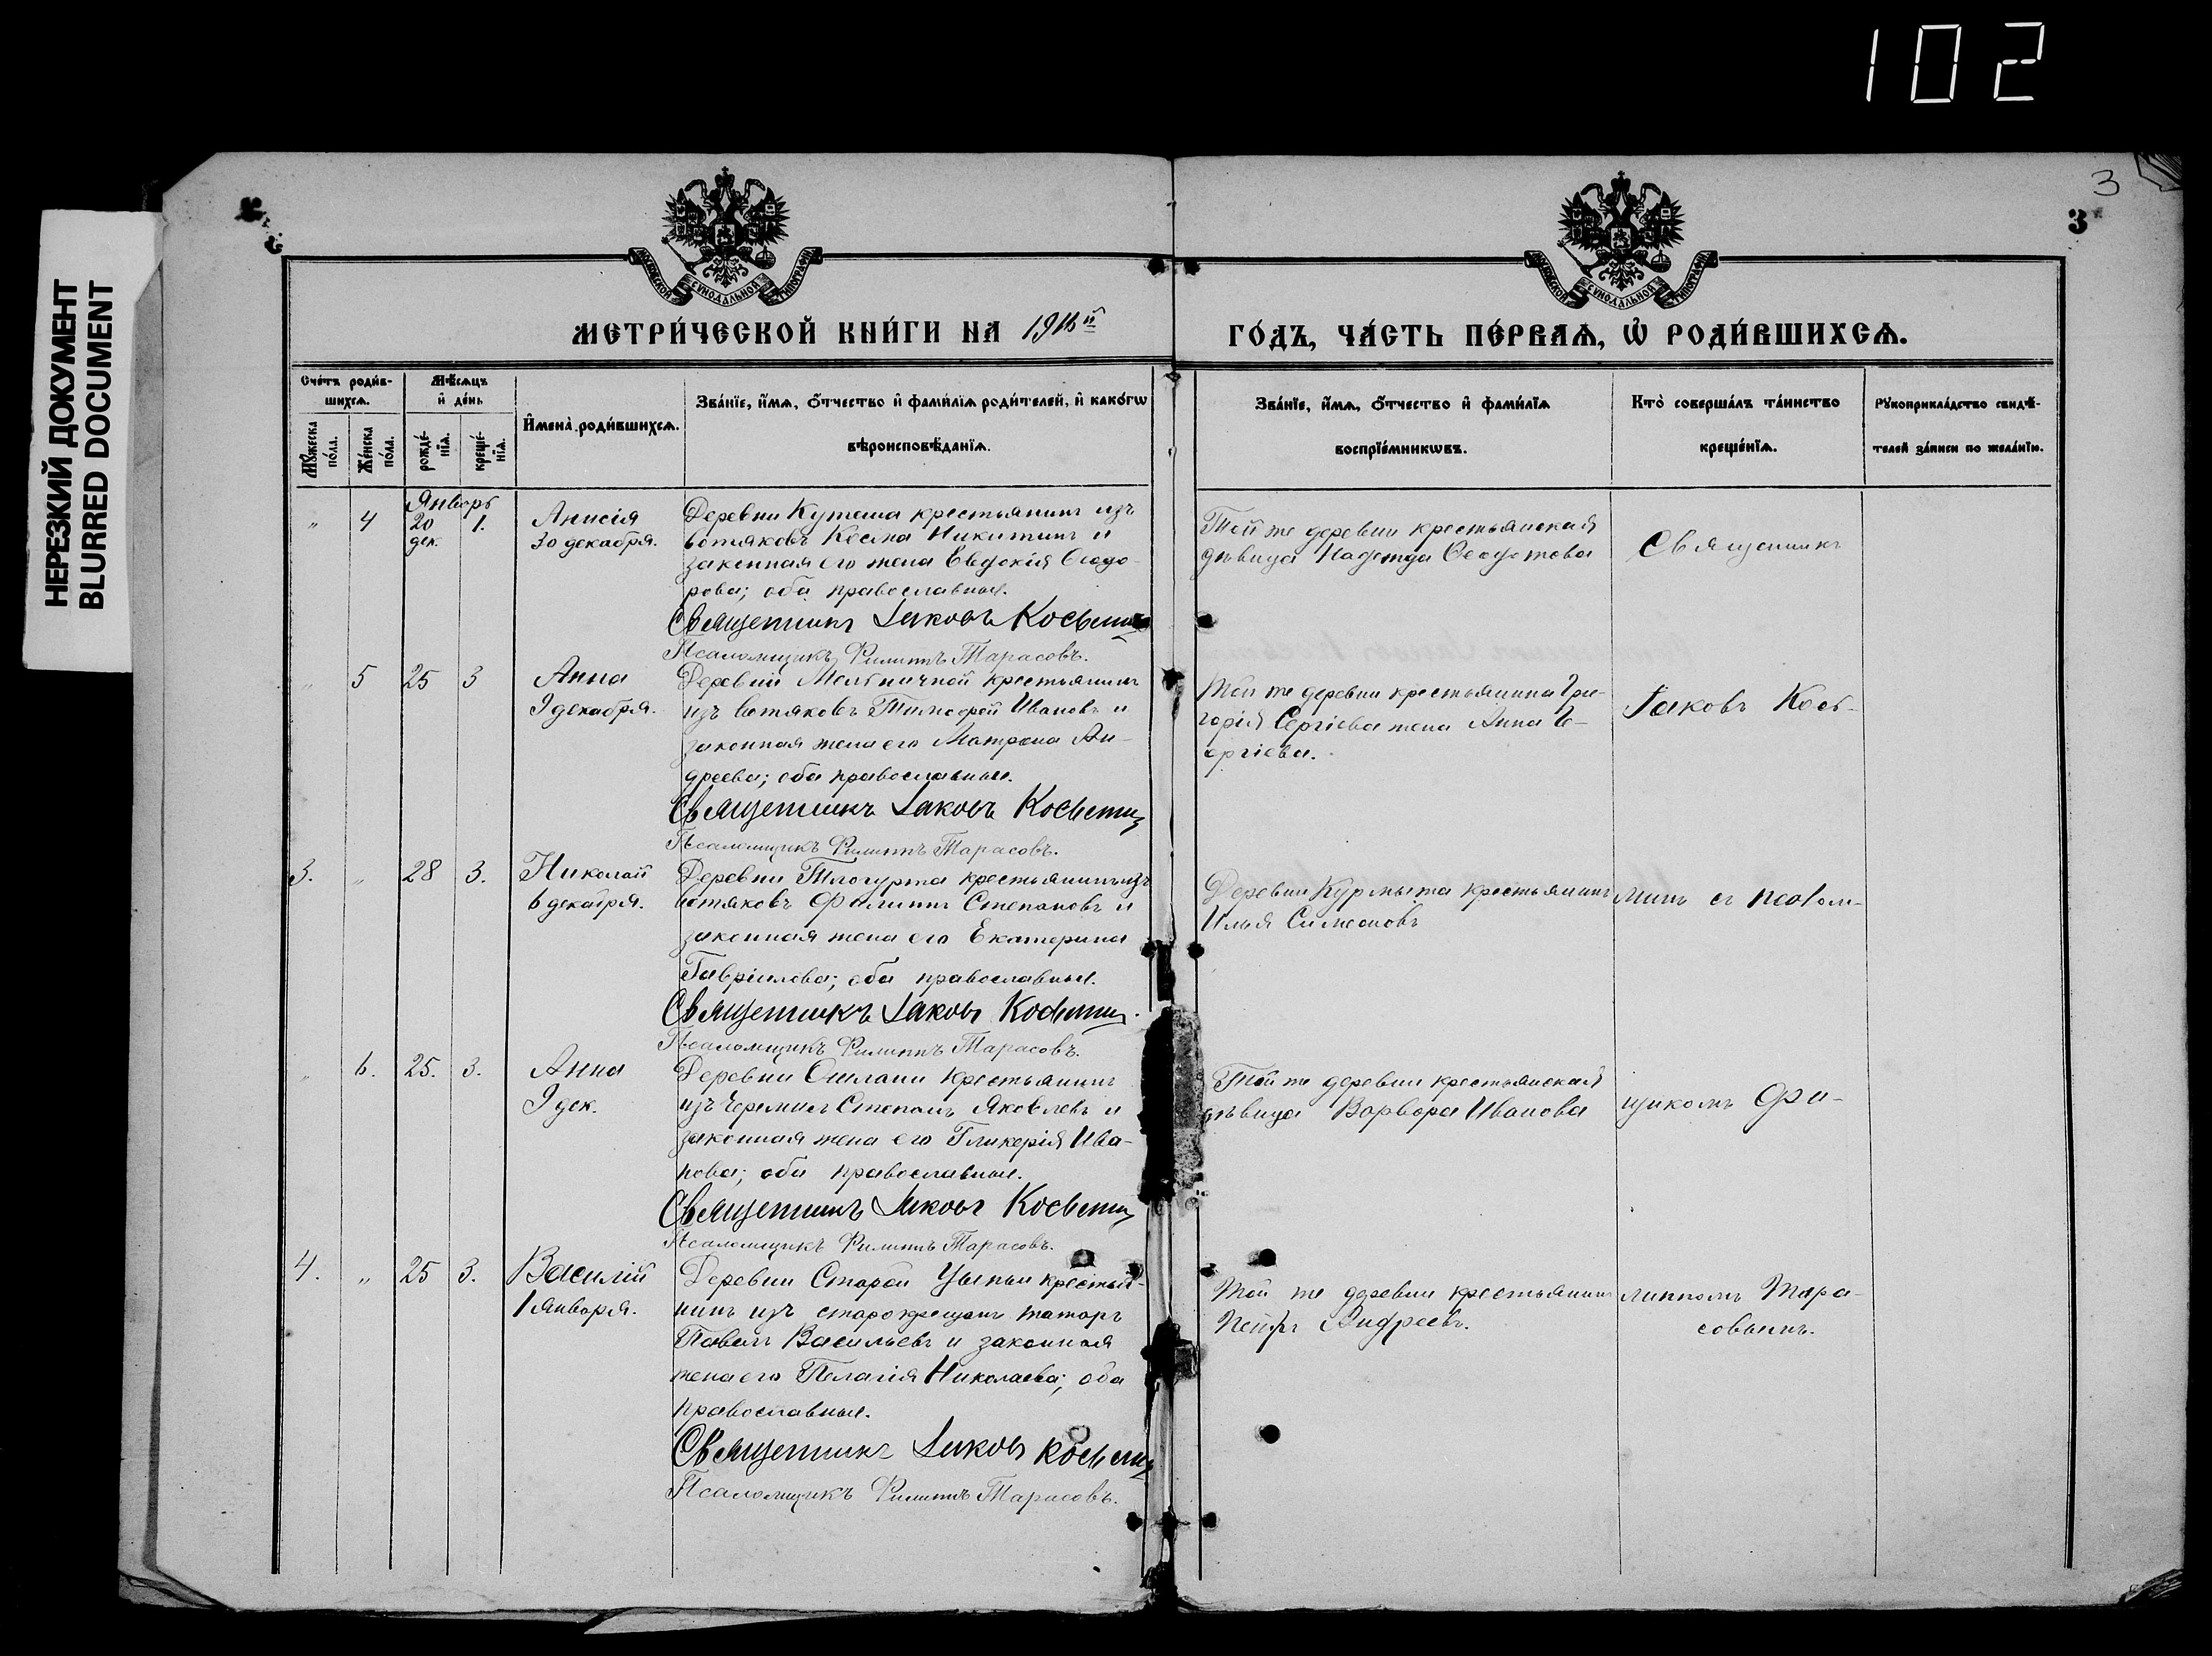 102
НЕРЕЗКИЙ ДОКУМЕНТ
BLURRED DOCUMENT
3
3
МОСКОВСКОЙ СѴНОДАЛЬНОЙ ТИПОГРАФІИ
МОСКОВСКОЙ СѴНОДАЛЬНОЙ ТИПОГРАФІИ
МЕТРИ́ЧЕСКОЙ КНИ́ГИ НА
ГО́ДЪ, ЧА́СТЬ ПЕ́РВАѦ, Ѡ҆ РОДИ́ВШИХСѦ.
Сче́тъ роди́в-
шихсѧ.
Мѣ́сѧцъ
и҆ де́нь
Мꙋ́жеска
по́ла.
Же́нска
по́ла.
рожде́-
нїѧ.
креще́-
нїѧ.
И҆мена̀ роди́вшихсѧ.
Зва́нїе, и҆́мѧ, ѻ҆́тчество и҆ фами́лїѧ роди́телей, и҆ како́гѡ
вѣроисповѣ́данїѧ.
Зва́нїе, и҆́мѧ, ѻ҆́тчество и҆ фами́лїѧ
воспрїе́мникѡвъ.
Кто̀ соверша́лъ та́инство
креще́нїѧ.
Рꙋкоприкла́дство свидѣ́-
телей за́писи по жела́нїю.
Январь
" 4 20 1.
дек.
Анисія
30 декабря.
Деревни Кутеша крестьянинъ изъ
вотяковъ Косма Никитинъ и
законная его жена Евдокія Ѳеодо-
рова; оба православные.
Священникъ Іаковъ
Псаломщикъ Филиппъ Тарасовъ.
Той же деревни крестьянская
дѣвица Надежда Ѳеодотова
Священникъ
" 5 25 3
Анна
9 декабря.
Деревни Мельничной крестьянинъ
изъ вотяковъ Тимофей Ивановъ и
законная жена его Матрона Ан-
дреева; оба православные.
Священникъ Іаковъ
Псаломщикъ Филиппъ Тарасовъ.
Той же деревни крестьянина Гри-
горія Сергіева жена Анна Ге-
оргіева.
Іаковъ
3. " 28 3.
Николай
6 декабря.
Деревни крестьянинъ изъ
вотяковъ Филиппъ Степановъ и
законная жена его Екатерина
Гавріилова; оба православные.
Священникъ Іаковъ
Псаломщикъ Филиппъ Тарасовъ.
Деревни крестьянинъ
Илья Симеоновъ
съ псалом-
" 6. 25. 3.
Анна
9 дек.
Деревни крестьянинъ
изъ черемисъ Степанъ Яковлевъ и
законная жена его Гликерія Ива-
нова; оба православные.
Священникъ Іаковъ
Псаломщикъ Филиппъ Тарасовъ.
Той же деревни крестьянская
дѣвица Варвара Иванова
щикомъ Фи-
4. " 25 3.
Василій
1 января.
Деревни Старой крестья-
нинъ изъ старокрещенъ татаръ
Павелъ Васильевъ и законная
жена его Пелагія Николаева; оба
православные.
Священникъ Іаковъ
Псаломщикъ Филиппъ Тарасовъ.
Той же деревни крестьянинъ
Петръ Андреевъ.
липпомъ Тара-
совымъ.